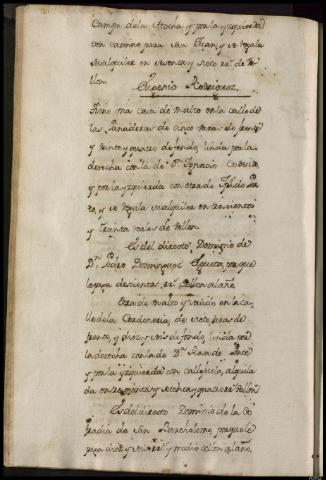 Campo dela Atocha, y por la yzquierda
con camino para san Juan, y se regula
su alquiler en setenta y siete rs. de Ve
llon.
Eugenio Rodriguez.
Tiene una casa de malto en la calle de
las Panaderas de cinco varas de frente
y veinte y quatro de fondo, linda por la
derecha con la de Dn. Ignacio
y por la yzquierda con otra de Ysidro
to, y se regula su alquiler en trescientos
y treinta reales de vellon.
Es del directo Dominio de
Dn. Pedro Dominguez porque
le paga doscientos rs. Vellon al año
Otra de malto y valido en la ca
lle dela Cordoneria, de siete varas de
frente, y diez y seis de fondo, linda por
la derecha con la de Da. Rosa de
y por la yzquierda con callejuela, alquila
da en trescientos y setenta y quatro rs. Vellon
Es del directo Dominio de la Co
fradia de san Bartholome, porque le
paga diez y seis rs. y medio vellon al año.